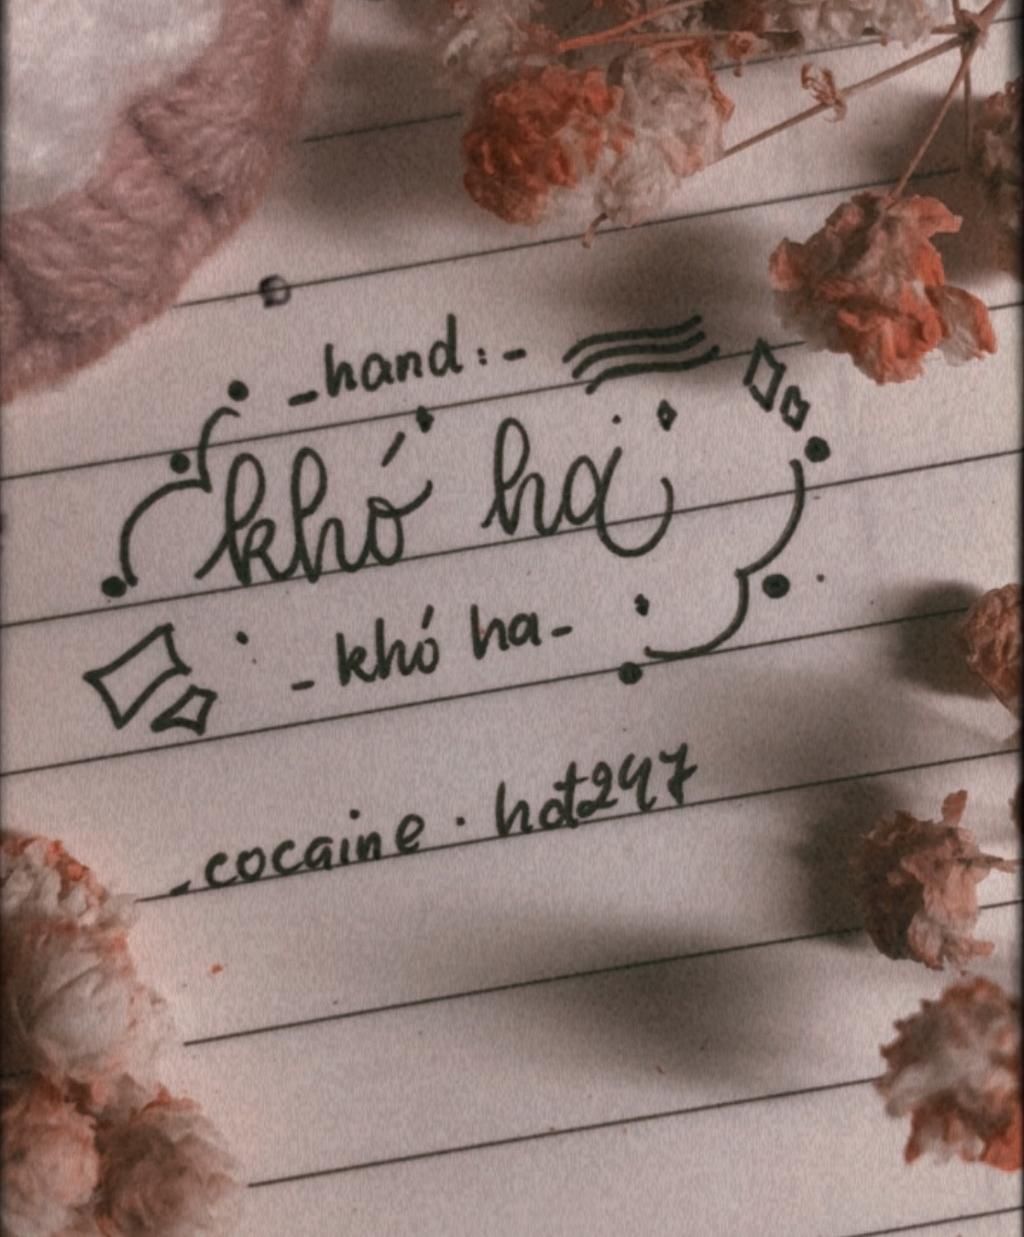 _hand:-
khó ha
- khó ha-
_cocaine . hot247